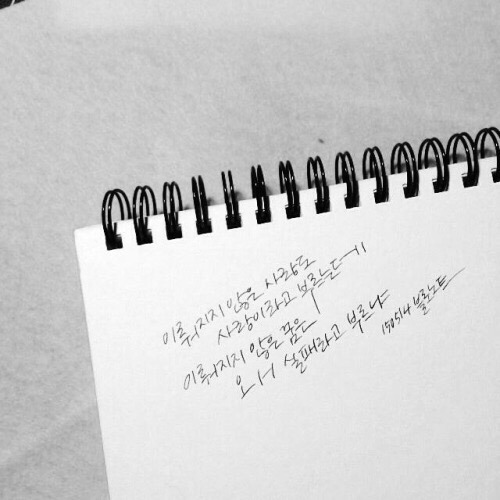 이뤄지지 않은 사랑도
사랑이라고 부르는데
이뤄지지 않은 꿈은
왜 실패라고 부르냐
150514 블로노트